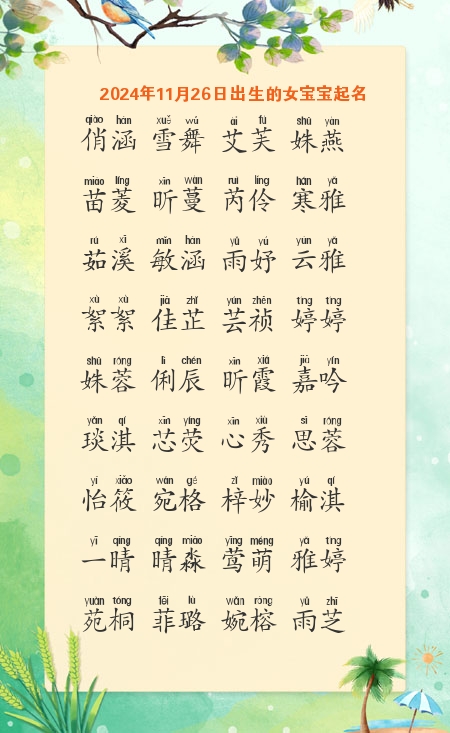 2024年11月26日出生的女宝宝起名
qiào hán xuě wǔ ài fú shū yàn
俏涵 雪舞 艾芙 姝燕
miáo líng xīn wàn ruì líng hán yǎ
苗菱 昕蔓 芮伶 寒雅
rú xī mǐn hán yǔ yú yún yǎ
茹溪 敏涵 雨妤 云雅
xù xù jiā zhǐ yún zhēn tíng tíng
絮絮 佳芷 芸祯 婷婷
shū róng lì chén xīn xiá jiā yín
姝蓉 俐辰 昕霞 嘉吟
yǎn qí xīn yíng xīn xiù sī róng
琰淇 芯荧 心秀 思蓉
yí xiǎo wǎn gé zǐ miào yú qí
怡筱 宛格 梓妙 榆淇
yī qíng qíng miǎo yīng méng yǎ tíng
一晴 晴淼 莺萌 雅婷
yuàn tóng fēi lù wǎn róng yǔ zhī
苑桐 菲璐 婉榕 雨芝